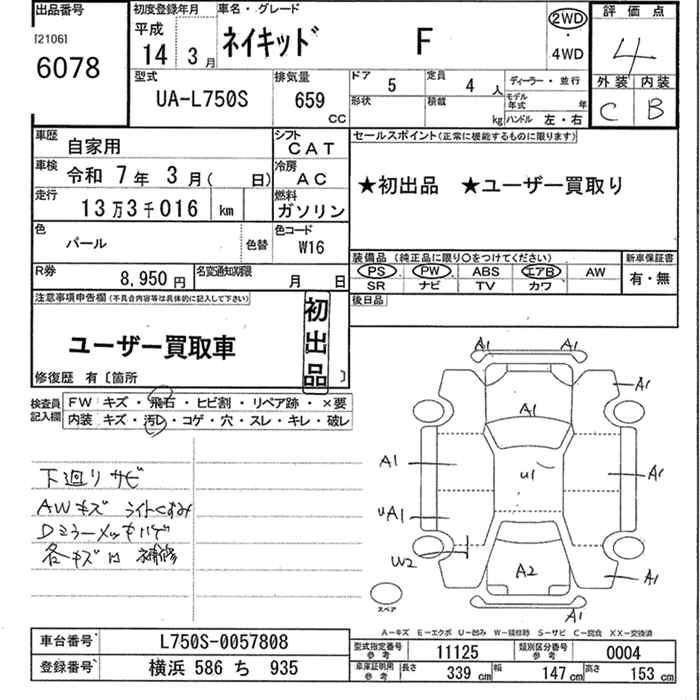 出品番号 初度登録年月 車名・グレード 評価点
[2106] 平成
6078 14 3月 ネイキッド F 2WD・4WD 4
型式 排気量 ドア 定員 ディーラー・並行 外装 内装
UA-L750S 659 CC 5 4人 モデル年式 年 C B
形状 積載 kg ハンドル 左・右
車歴 自家用 シフト CAT セールスポイント(正常に機能するものに限ります)
車検 令和 7年 3月( 日) 冷房 AC ★初出品 ★ユーザー買取り
走行 13万3千016 km 燃料 ガソリン
色 パール 色替 色コード W16
装備品 (純正品に限り○をつけてください) 新車保証書
R券 8,950円 名変通知期限 月 日 PS PW ABS エアB AW 有・無
SR ナビ TV カワ
注意事項申告欄(不具合内容等は具体的に記入して下さい) 初出品 後日品
ユーザー買取車
修復歴 有〔箇所 〕
検査員記入欄 FW キズ・飛石・ヒビ割・リペア跡・×要
内装 キズ・汚レ・コゲ・穴・スレ・キレ・破レ
下廻りサビ
AWキズ ライトくすみ
Dミラーメッキハゲ
各キズ 補修
A1 A1
A1
A1
A1 U1 A1
UA1
W2
A2 A1
A1
スペア
A-キズ E-エクボ U-凹み W-補修跡 S-サビ C-腐食 XX-交換済
車台番号 L750S-0057808 型式指定番号 参考 11125 類別区分番号 参考 0004
登録番号 横浜 586 ち 935 車庫証明用 参考 長さ 339cm 幅 147cm 高さ 153cm